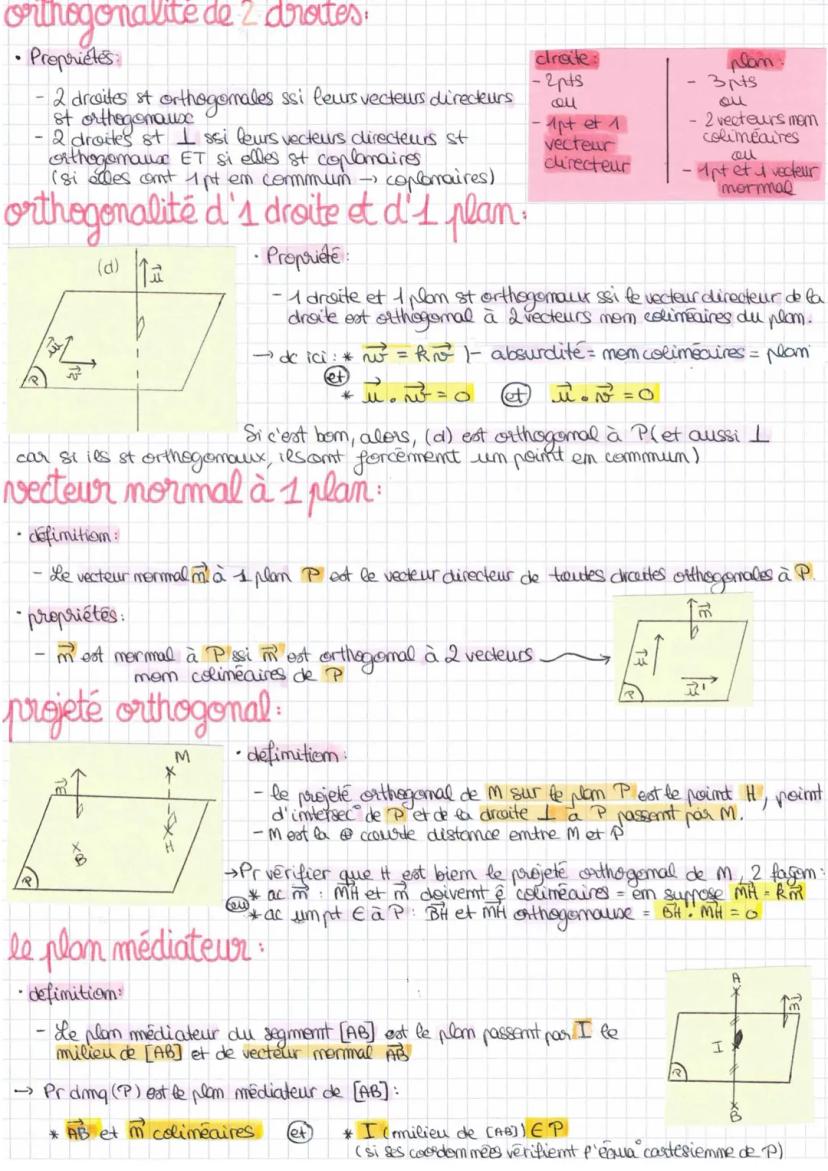 orthogonalité de 2 droites:
• Propriétés:
- 2 droites st orthogonales ssi leurs vecteurs directeurs
st orthogonaux
- 2 droites st ⊥ ssi leurs vecteurs directeurs st
orthogonaux ET si elles st coplanaires
(si elles ont 1 pt en commmun → coplanaires)
droite:
- 2pts
ou
- 1pt et 1
vecteur
directeur
plan:
- 3pts
ou
- 2 vecteurs non
colinéaires
ou
- 1pt et 1 vecteur
normal
orthogonalité d'1 droite et d'1 plan:
(d) u⃗
w⃗
v⃗
P
• Propriété:
- 1 droite et 1 plan st orthogonaux ssi le vecteur directeur de la
droite est orthogonal à 2 vecteurs non colinéaires du plan.
→ dc ici: * w⃗ = k v⃗ }- absurdité = non colinéaires = plan
et
* u⃗ . w⃗ = 0 et u⃗ . v⃗ = 0
Si c'est bon, alors, (d) est orthogonal à P (et aussi ⊥
car si ils st orthogonaux, ils ont forcément un point en commun)
vecteur normal à 1 plan:
• définition:
- Le vecteur normal n⃗ à 1 plan P est le vecteur directeur de toutes droites orthogonales à P.
• propriétés:
- n⃗ est normal à P ssi n⃗ est orthogonal à 2 vecteurs
non colinéaires de P
n⃗
u⃗
u⃗'
P
projeté orthogonal:
M
n⃗
B
H
P
• definition:
- le projeté orthogonal de M sur le plan P est le point H, point
d'intersec° de P et de la droite ⊥ à P passant par M.
- M est la ⊕ courte distance entre M et P
→ Pr vérifier que H est bien le projeté orthogonal de M, 2 façon:
* ac n⃗ : MH et n⃗ doivent ê colinéaires = on suppose MH⃗ = k n⃗
ou * ac un pt ∈ à P : BH⃗ et MH⃗ orthogonaux = BH⃗ . MH⃗ = 0
le plan médiateur:
• definition:
- Le plan médiateur du segment [AB] est le plan passant par I le
milieu de [AB] et de vecteur normal AB⃗
→ Pr dmq (P) est le plan médiateur de [AB]:
* AB⃗ et n⃗ colinéaires et * I (milieu de [AB]) ∈ P
(si ses coordonnées vérifient l'équa° cartésienne de P)
A
n⃗
I
P
B